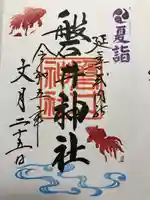 夏詣
延喜式内社
磐井神社
令和五年
文月二十五日